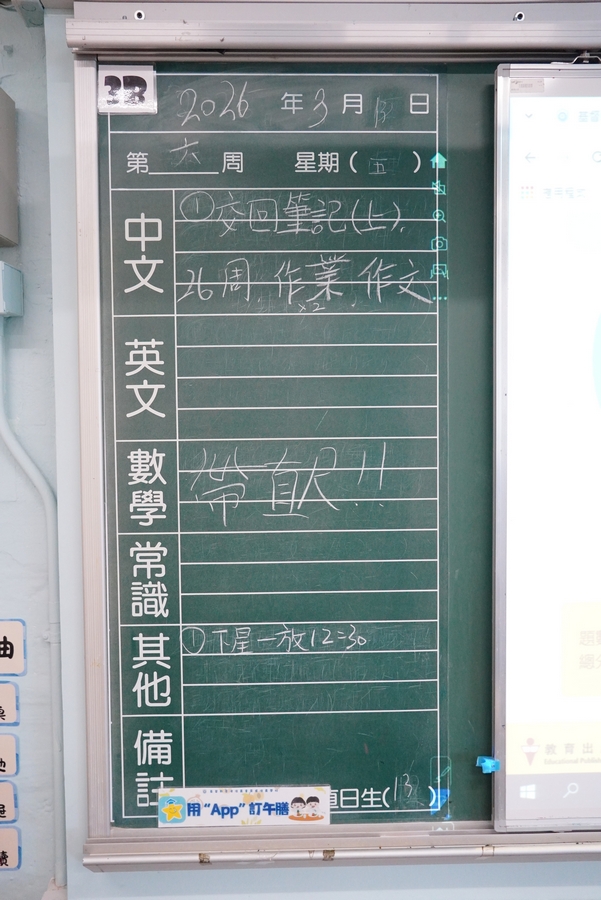 3B
2026 年 3 月 日
第 六 周 星期 ( 五 )
中文
①交回筆記(上).
26周 作業 作文
x2
英文
數學
帶直尺!!
常識
其他
①下星一放12:30
備註
用“App”訂午膳
直日生(13)
教育出
Educational Publis